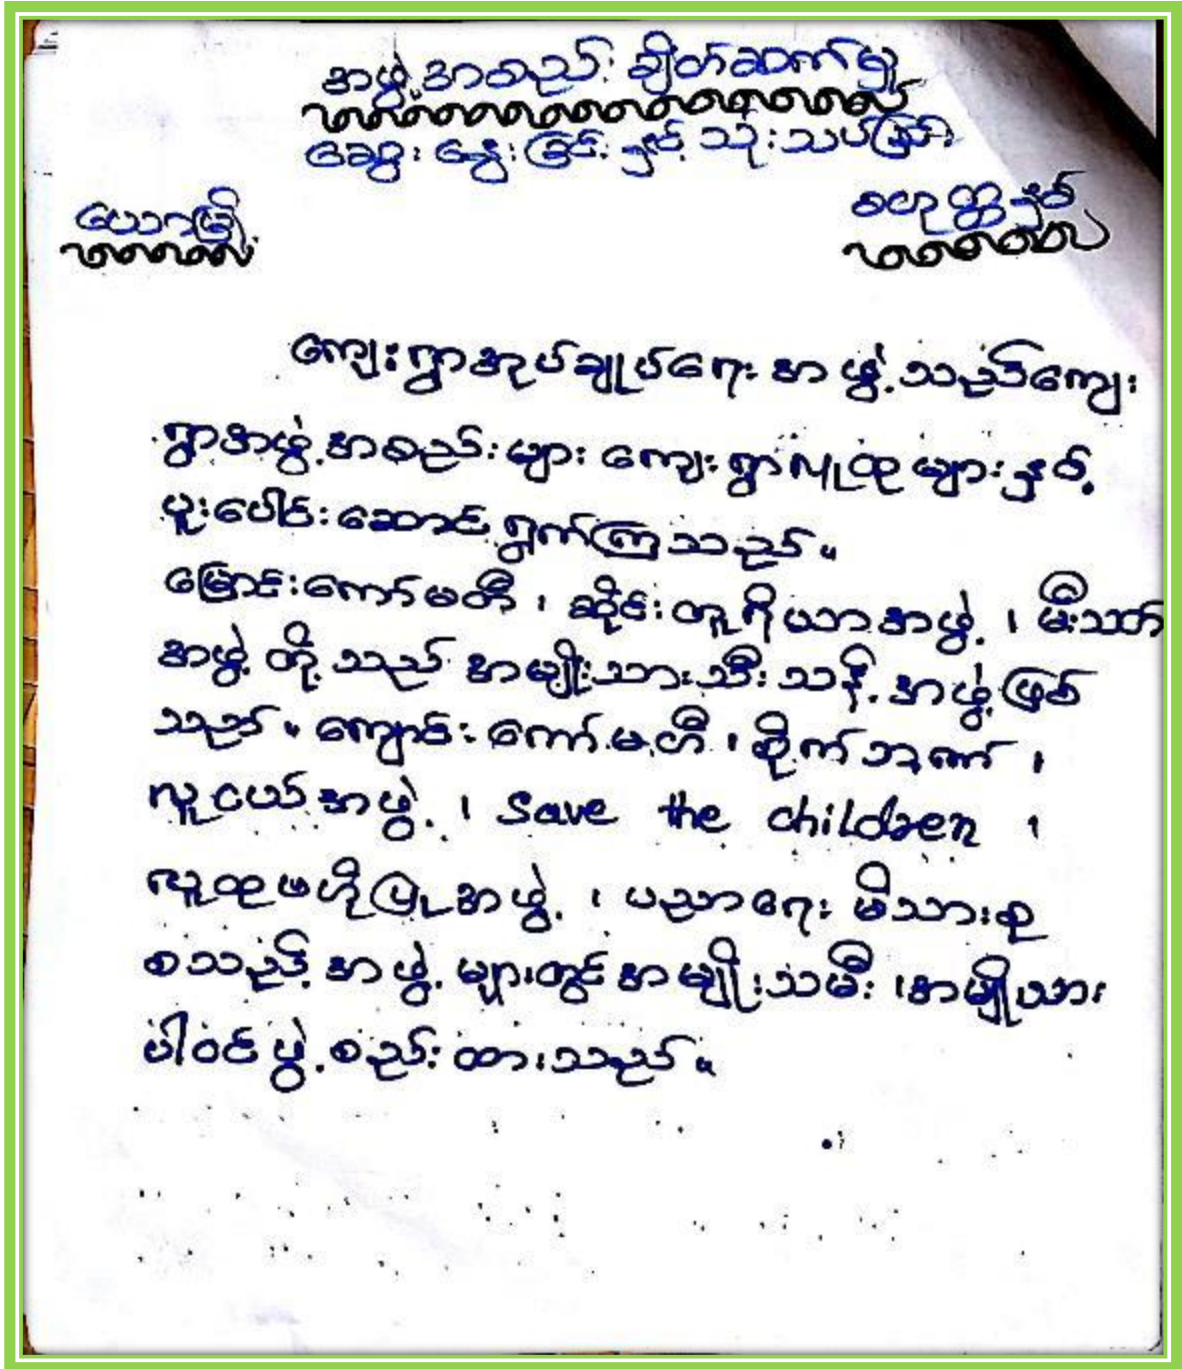 အဖွဲ့အစည်း ချိတ်ဆက်မှု
ဆွေးနွေးခြင်း နှင့် သုံးသပ်ခြင်း
ယောမြို့
စဟုတ္တနှစ်
ကျေးရွာအုပ်ချုပ်ရေး အဖွဲ့သည်ကျေး
ရွာအဖွဲ့အစည်းများ ကျေးရွာလူထုများနှင့်
ပူးပေါင်းဆောင်ရွက်ကြသည်။
မြောင်းကော်မတီ ၊ ဆိုင်းတူရိယာအဖွဲ့ ၊ မီးသတ်
အဖွဲ့ တို့သည် အမျိုးသားသီးသန့် အဖွဲ့ဖြစ်
သည်။ ကျောင်းကော်မတီ ၊ စိုက်ဘဏ် ၊
လူငယ်အဖွဲ့ ၊ Save the children ၊
လူထုဗဟိုပြုအဖွဲ့ ၊ ပညာရေး မိသားစု
စသည့် အဖွဲ့များတွင် အမျိုးသမီး ၊အမျိုးသား
ပါဝင်ဖွဲ့စည်းထားသည်။